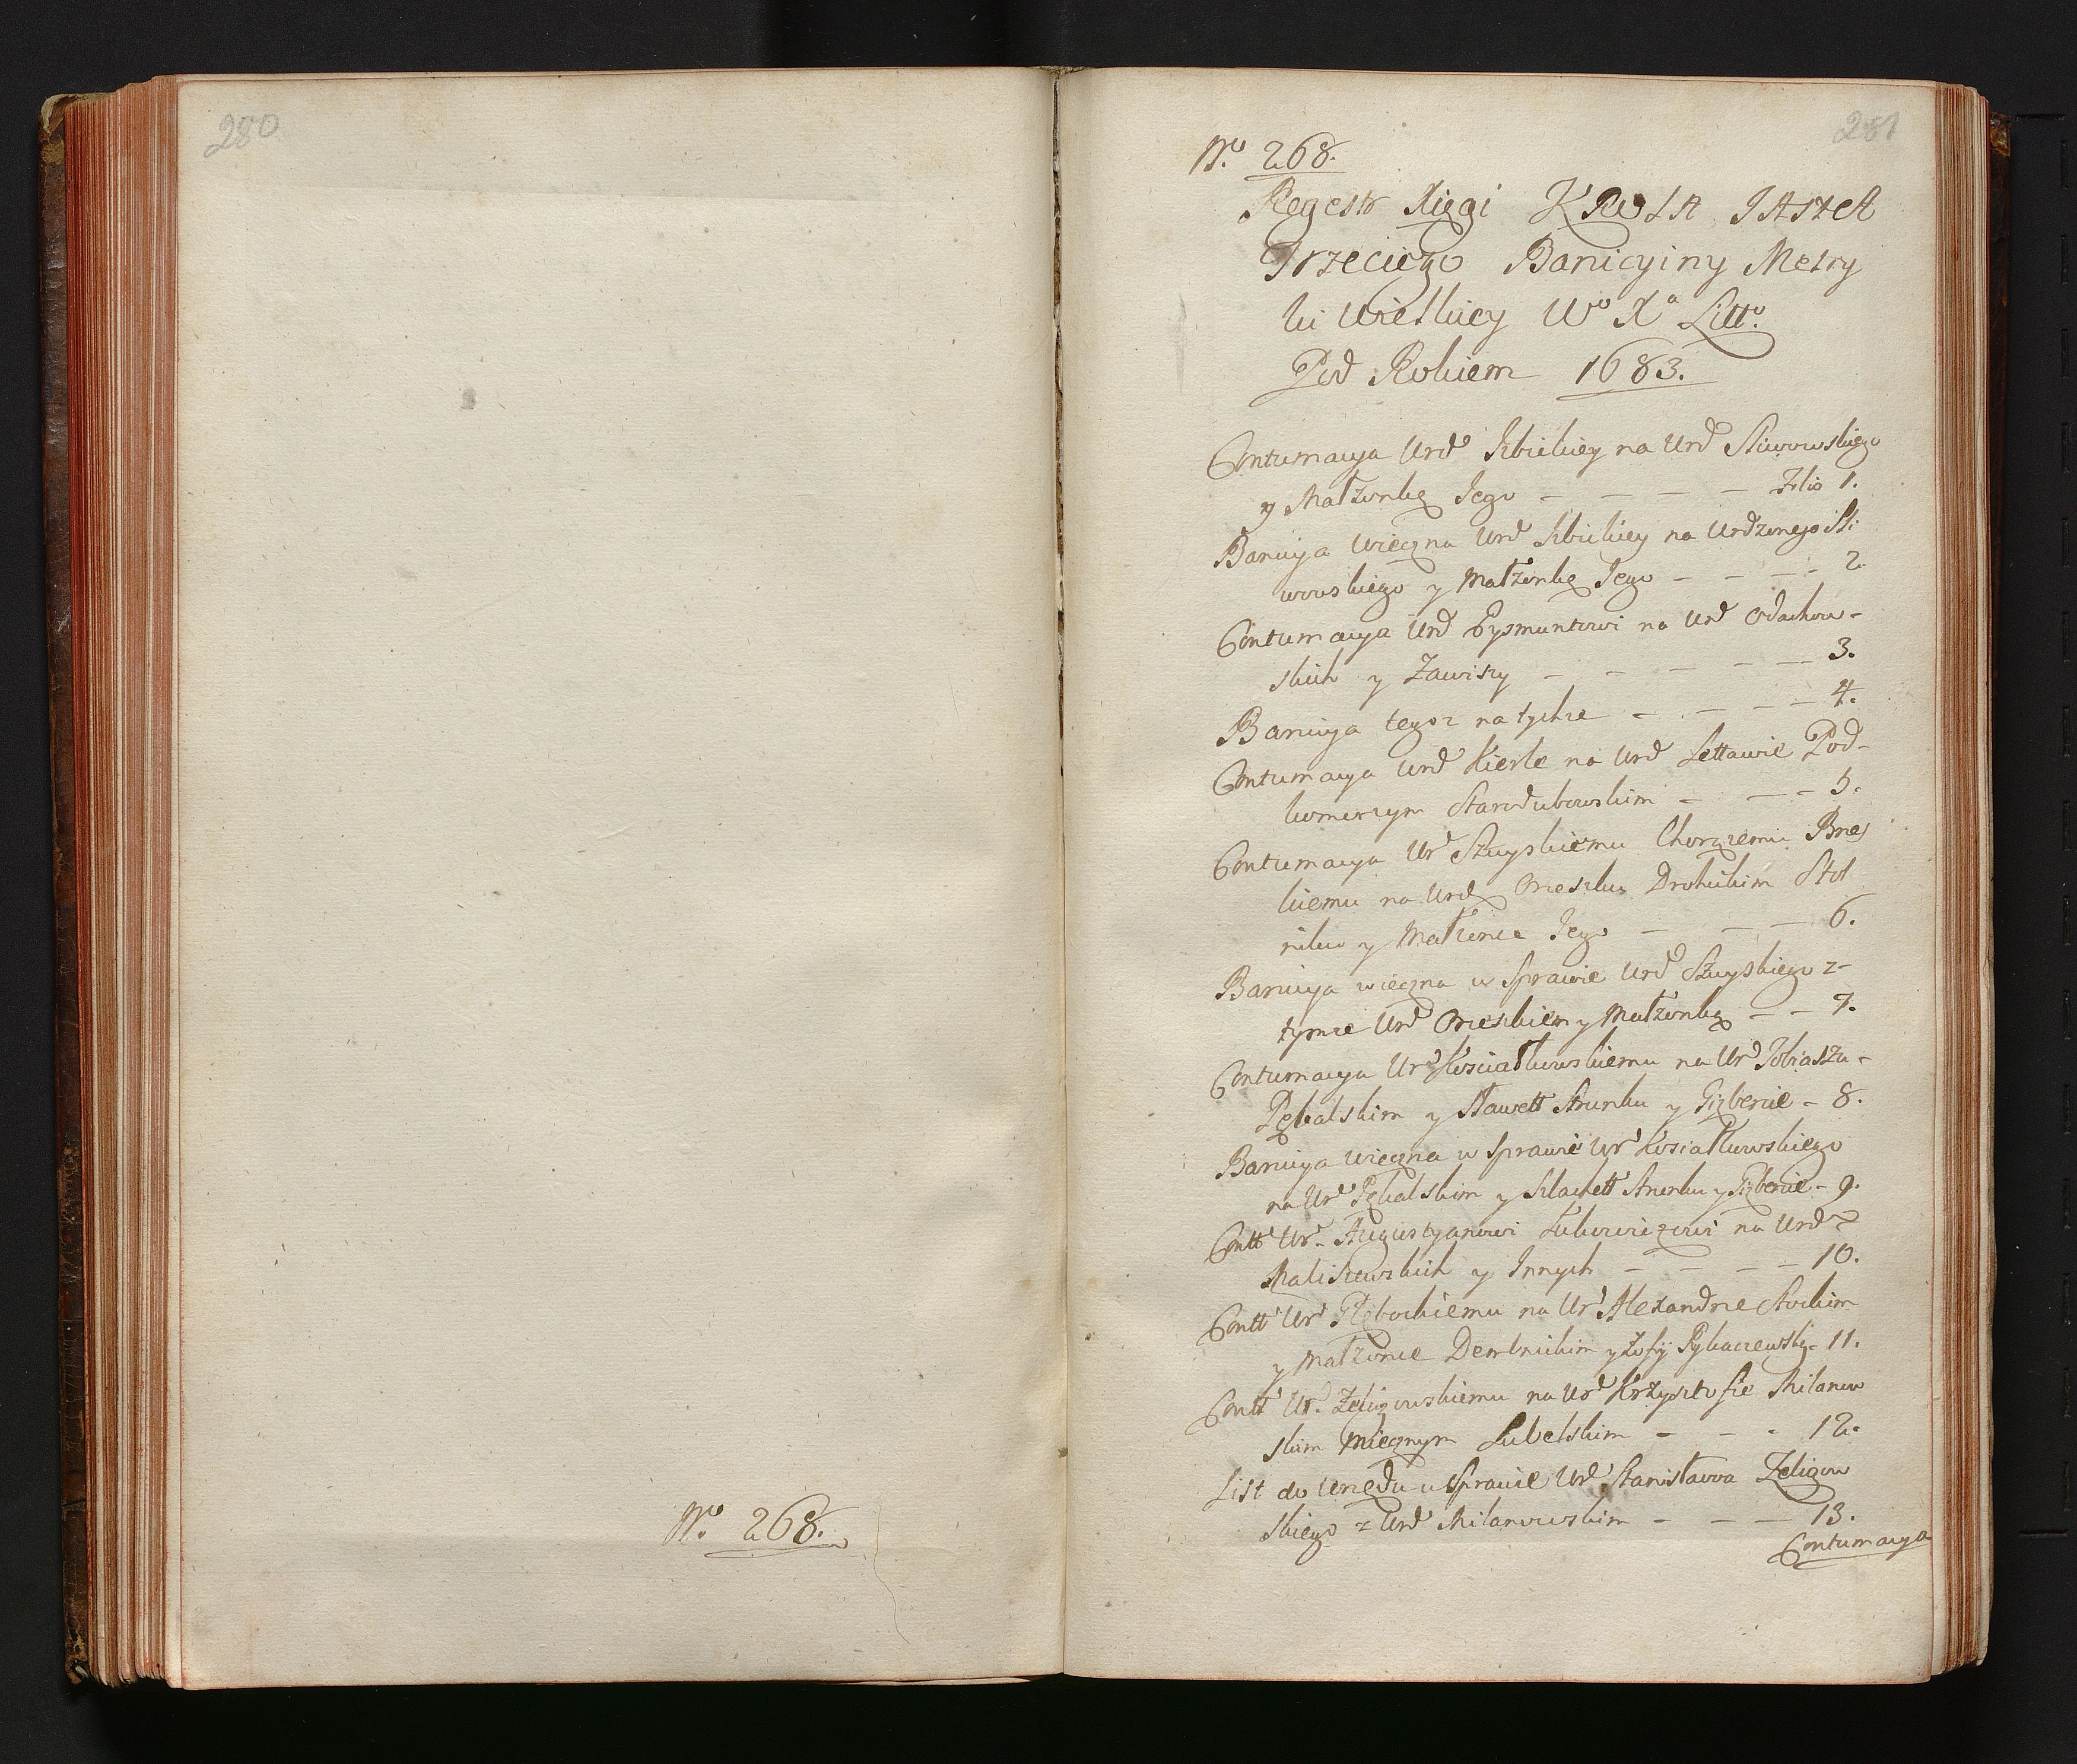 280
No 268.
281
No 268.
Regestr Xięgi KROLA JANA
Trzeciego Banicyiny Metry
ki Wielkiey Wo Xa Litto.
Pod Rokiem 1683.
Contumacya Urd Kbickiey na Urd Sliwowskiego
y Małżonkę Jego – – – – – Folio 1.
Banicya wieczna Urd Kbickiey na Urdzonego Sli
wowskiego y Małżonkę Jego – – – – 2.
Contumacya Urd Pysmuntowi na Urd Odachow-
skich y Zawiszy – – – – – 3.
Banicya tegoż na tychże – – – – 4.
Contumacya Urd Kierle na Urd Lettawie Pod-
komorzym Starodubowskim – – – 5.
Contumacya Ur Szuyskiemu Chorążemu Brzes
kiemu na Urd Orzeszku Drohickim Stol
niku y Małżonce Jego – – – 6.
Banicya wieczna w Sprawie Urd Szuyskiego z-
tymże Urd Orzeszkiem y Małżonką – – 7.
Contumacya Urd Kosciałkowskiemu na Urd Tobiaszu-
Pękalskim y Sławett Strunku y Gizbercie – 8.
Banicya wieczna w Sprawie Urd Kosiałkowskiego
na Urd Pękalskim y Szlachett Strunku y Gizbercie – 9.
Contt Ur. Augustyanowi Lukowiczowi na Urd
Maliszewskich y Innych – – – – 10.
Contt Ur Głębockiemu na Ur Alexandrze Stockim
y Małżonce Dembnickim y Zofij Rykaczewskiey – 11.
Contt Ur. Zeligowskiemu na Urd Krzysztofie Milanow
skim Miecznym Lubelskim – – – 12.
List do Urzędu w Sprawie Urd Stanisława Zeligow
skiego z Urd Milanowskim – – – 13.
Contumacya